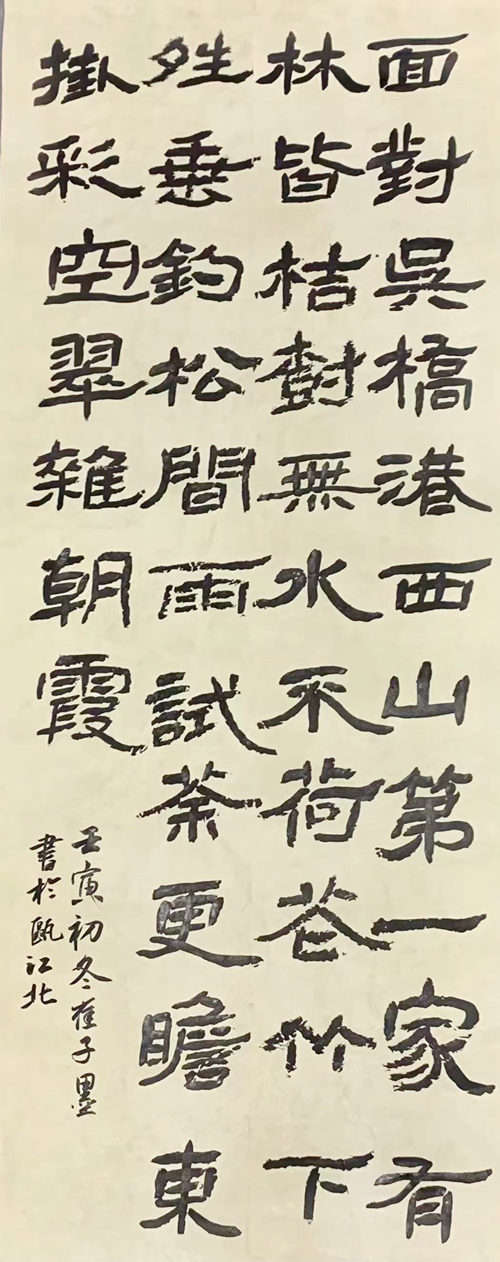 面對吳橋港西山第一家有
林皆桔樹無水不荷花竹下
姓垂釣松間雨試茶更瞻東
掛彩空翠雜朝霞
壬寅初冬崔子墨
書於甌江北